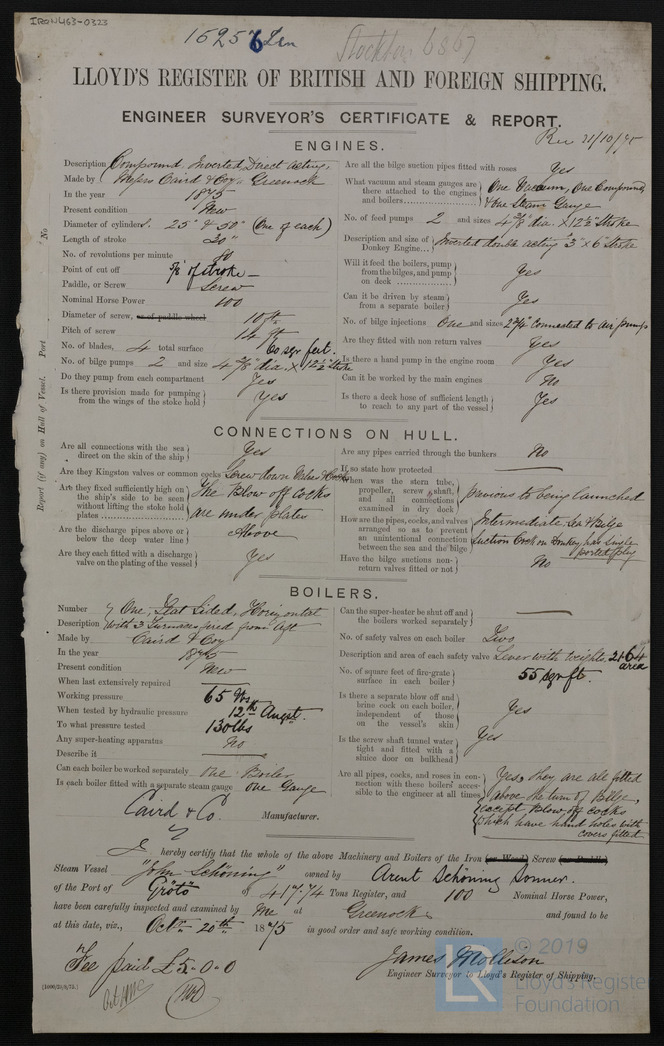 IRON463-0323
15256 Len
Stockton 6867
LLOYD'S REGISTER OF BRITISH AND FOREIGN SHIPPING.
ENGINEER SURVEYOR'S CERTIFICATE & REPORT.
Rec 21/10/75
ENGINES.
Description Compound, Inverted, Direct acting,
Made by Messrs Caird & Coy Greenock
In the year 1875
Present condition New
Diameter of cylinders. 25" & 50" (One of each)
Length of stroke 30"
No. of revolutions per minute
Point of cut off of stroke
Paddle, or Screw Screw
Nominal Horse Power 100
Diameter of screw, or of paddle wheel 10 ft
Pitch of screw 14 ft
No. of blades, 4 total surface 60 sqr feet.
No. of bilge pumps 2 and size 4 7/8" dia. x 12 1/2" Stroke
Do they pump from each compartment Yes
Is there provision made for pumping from the wings of the stoke hold Yes
Are all the bilge suction pipes fitted with roses Yes
What vacuum and steam gauges are there attached to the engines and boilers One Vacuum, One Compound & one Steam Gauge
No. of feed pumps 2 and sizes 4 7/8" dia. x 12 1/2" Stroke
Description and size of Donkey Engine Inverted double acting 3" x 6" Stroke
Will it feed the boilers, pump from the bilges, and pump on deck Yes
Can it be driven by steam from a separate boiler Yes
No. of bilge injections One and sizes 2 3/4" Connected to air pump
Are they fitted with non return valves Yes
Is there a hand pump in the engine room Yes
Can it be worked by the main engines No
Is there a deck hose of sufficient length to reach to any part of the vessel Yes
Report (if any) on Hull of Vessel. Port No
CONNECTIONS ON HULL.
Are all connections with the sea direct on the skin of the ship Yes
Are they Kingston valves or common cocks Screw down Valves & Cocks
Are they fixed sufficiently high on the ship's side to be seen without lifting the stoke hold plates The Blow off Cocks are under plates
Are the discharge pipes above or below the deep water line Above
Are they each fitted with a discharge valve on the plating of the vessel Yes
Are any pipes carried through the bunkers No
If so state how protected
When was the stern tube, propeller, screw shaft, and all connections examined in dry dock previous to being launched
How are the pipes, cocks, and valves arranged so as to prevent an unintentional connection between the sea and the bilge Intermediate Sea & Bilge suction Cock on Donkey has single ported plug
Have the bilge suctions non-return valves fitted or not No
BOILERS.
Number One, Flat Sided, Horizontal
Description with 3 Furnaces fired from aft
Made by Caird & Coy
In the year 1875
Present condition New
When last extensively repaired
Working pressure 65 lbs
When tested by hydraulic pressure 12th Augst.
To what pressure tested 130 lbs
Any super-heating apparatus No
Describe it
Can each boiler be worked separately One Boiler
Is each boiler fitted with a separate steam gauge one Gauge
Can the super-heater be shut off and the boilers worked separately
No. of safety valves on each boiler Two
Description and area of each safety valve Lever with weights area
No. of square feet of fire-grate surface in each boiler 55 sqr ft.
Is there a separate blow off and brine cock on each boiler, independent of those on the vessel's skin Yes
Is the screw shaft tunnel water tight and fitted with a sluice door on bulkhead Yes
Are all pipes, cocks, and roses in connection with these boilers accessible to the engineer at all times Yes, they are all fitted above the turn of Bilge, except Blow off cocks which have hand holes with covers fitted
Caird & Co. Manufacturer.
I hereby certify that the whole of the above Machinery and Boilers of the Iron (or Wood) Screw (or Paddle)
Steam Vessel "John Schöning" owned by Arent Schöning Sonner.
of the Port of Grötö of 417.74 Tons Register, and 100 Nominal Horse Power,
have been carefully inspected and examined by Me at Greenock and found to be
at this date, viz., Octr 20th 1875 in good order and safe working condition.
James Mollison
Fee paid £5.0.0
Engineer Surveyor to Lloyd's Register of Shipping.
© 2019
LR Lloyd's Register Foundation